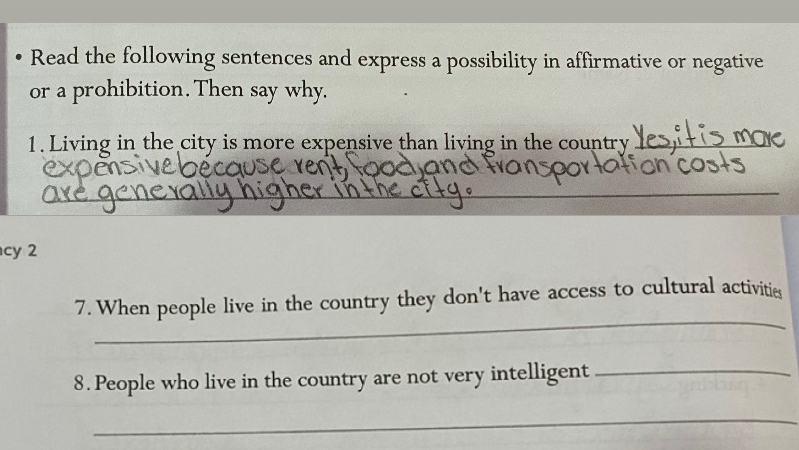 • Read the following sentences and express a possibility in affirmative or negative
or a prohibition. Then say why.
1. Living in the city is more expensive than living in the country Yes, it is more
expensive because rent, food, and transportation costs
are generally higher in the city.
ncy 2
7. When people live in the country they don't have access to cultural activities
8. People who live in the country are not very intelligent